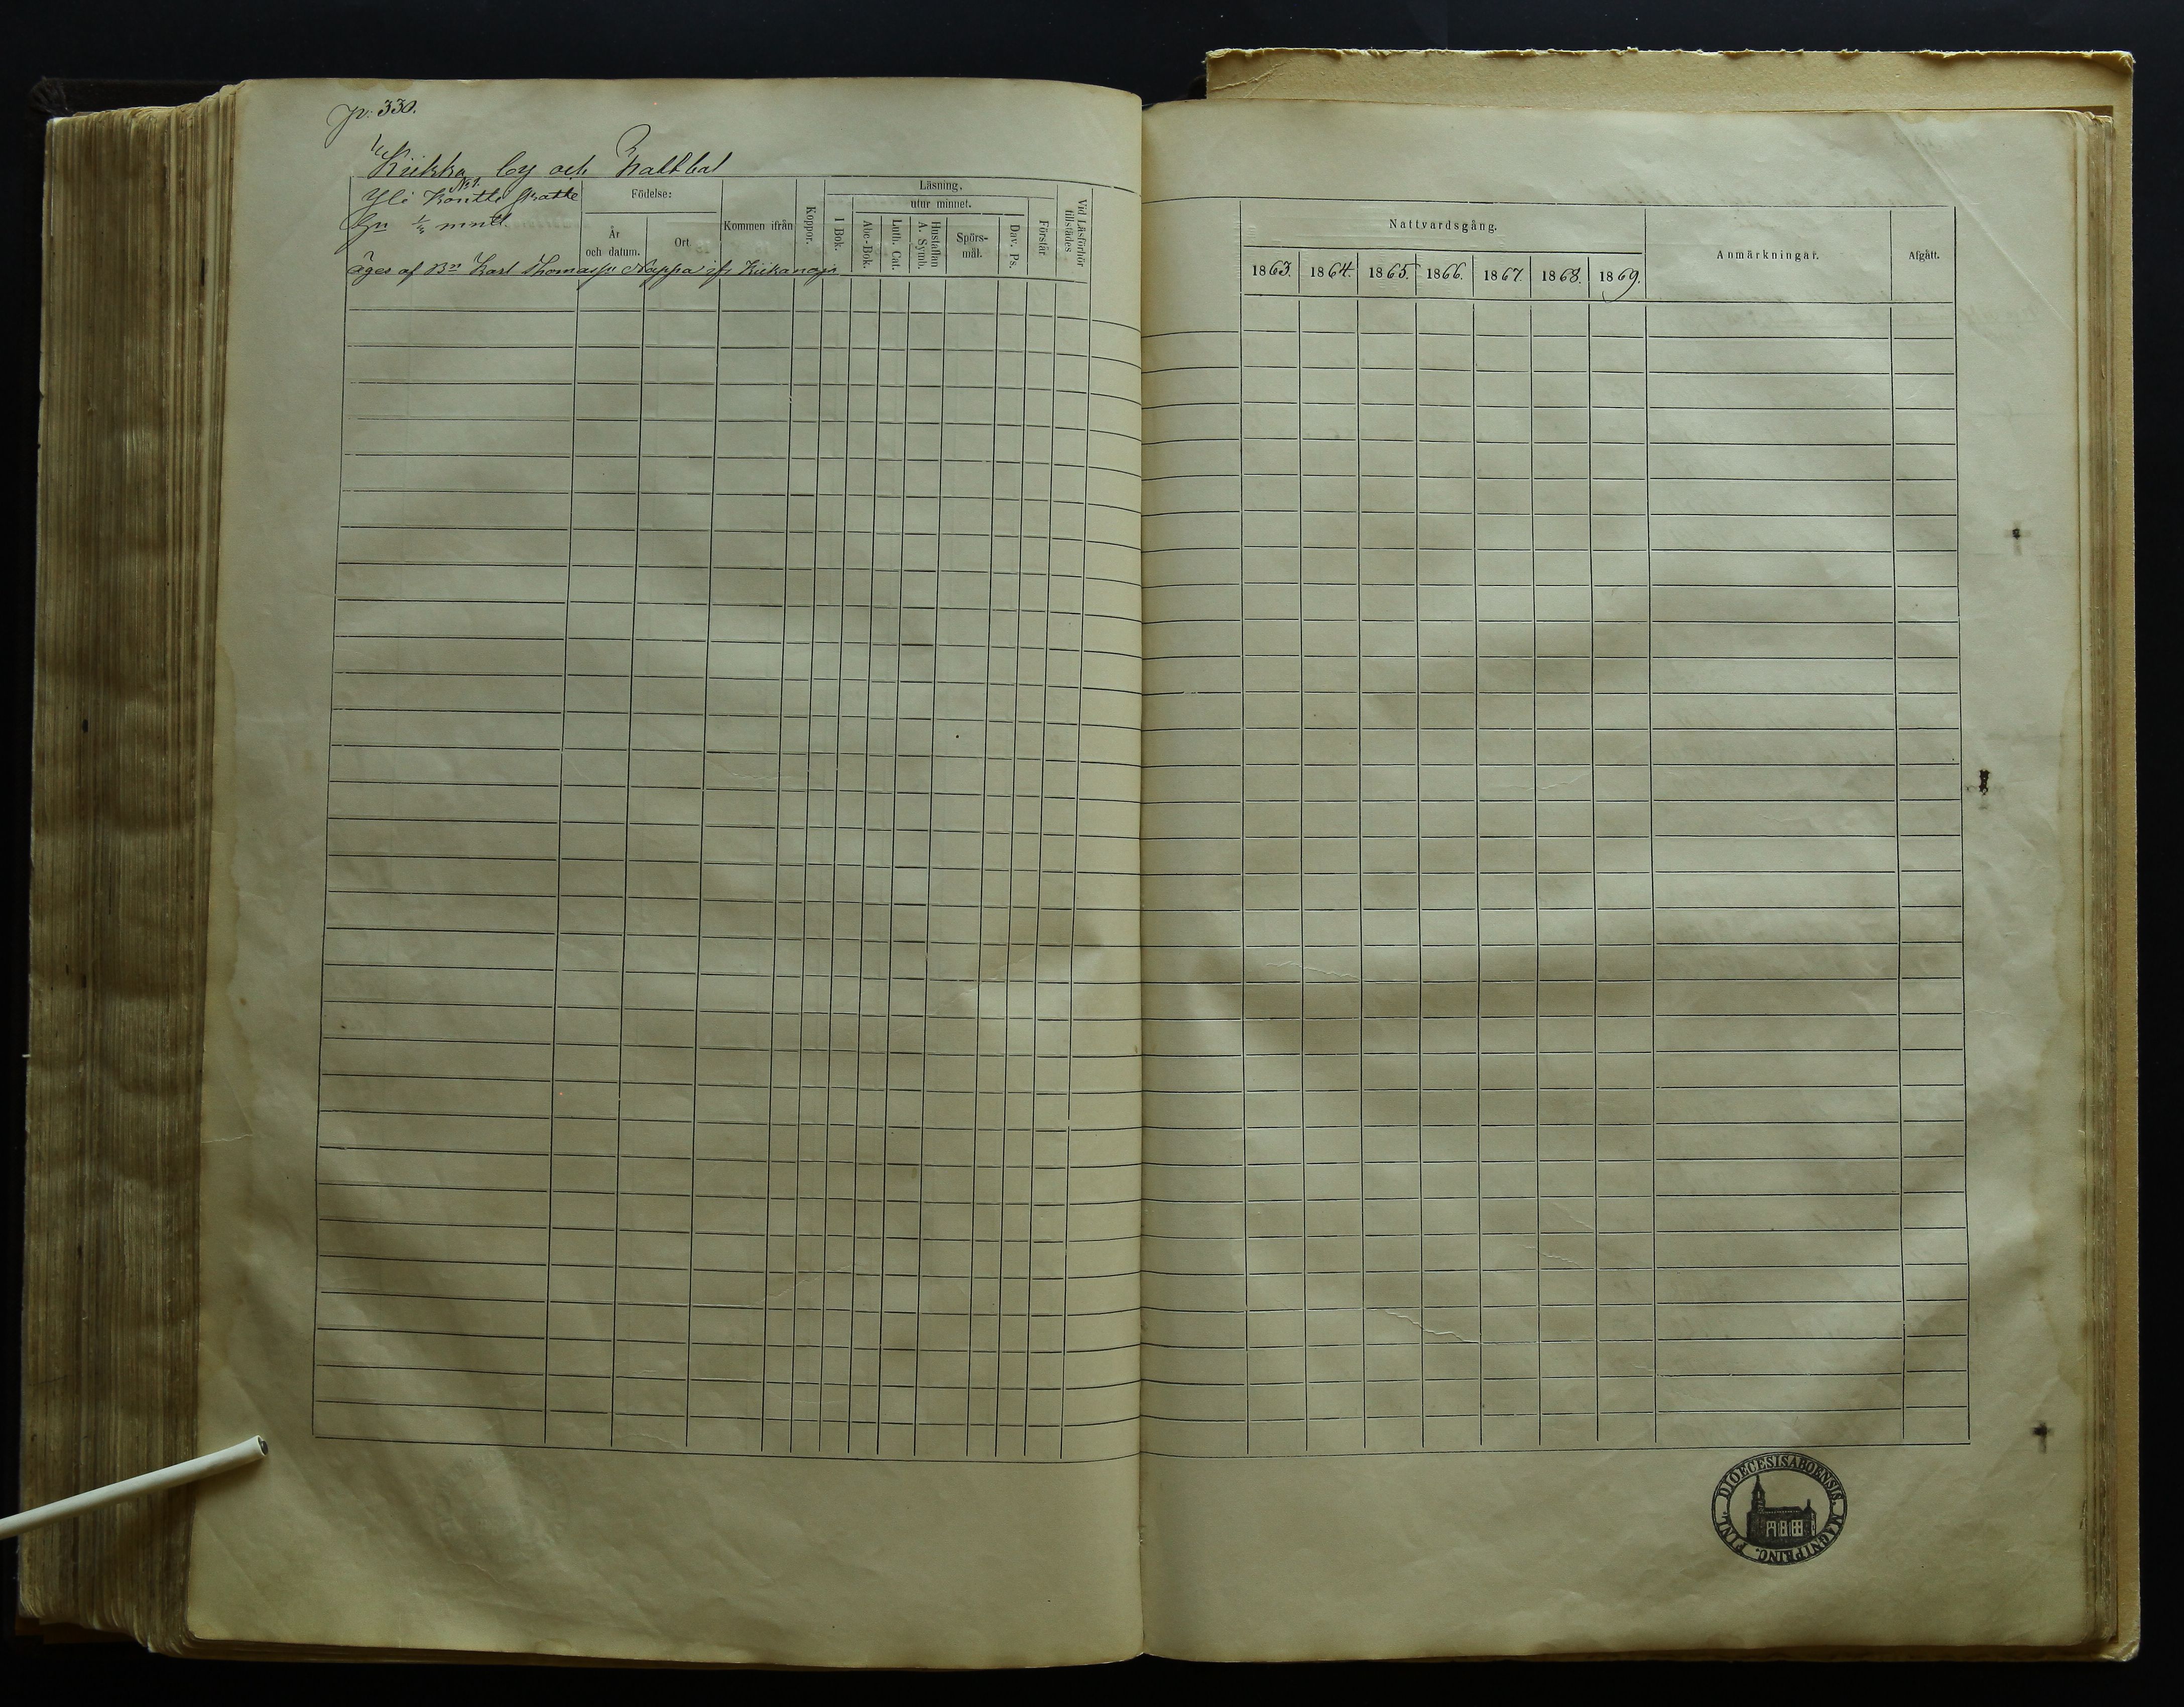 p. 330.
Kiikka by och
Yli Kouttu No 1. Skatte
mntl.
Äges af Bn Karl Thomasson Nappa ifr Kiikanoja
Födelse:
År och datum.
Ort
Kommen ifrån
Koppor.
Läsning.
I Bok.
utur minnet.
Abc-Bok.
Luth. Cat.
Hustaflan A. Symb.
Spörs-mål.
Dav. Ps.
Förstår
Vid Läsförhör tillstädes
Nattvardsgång.
1863. 1864. 1865. 1866. 1867. 1868. 1869.
Anmärkningar.
Afgått.
DIOECESIS ABOENSIS. MAGNI PRINC. FINL.